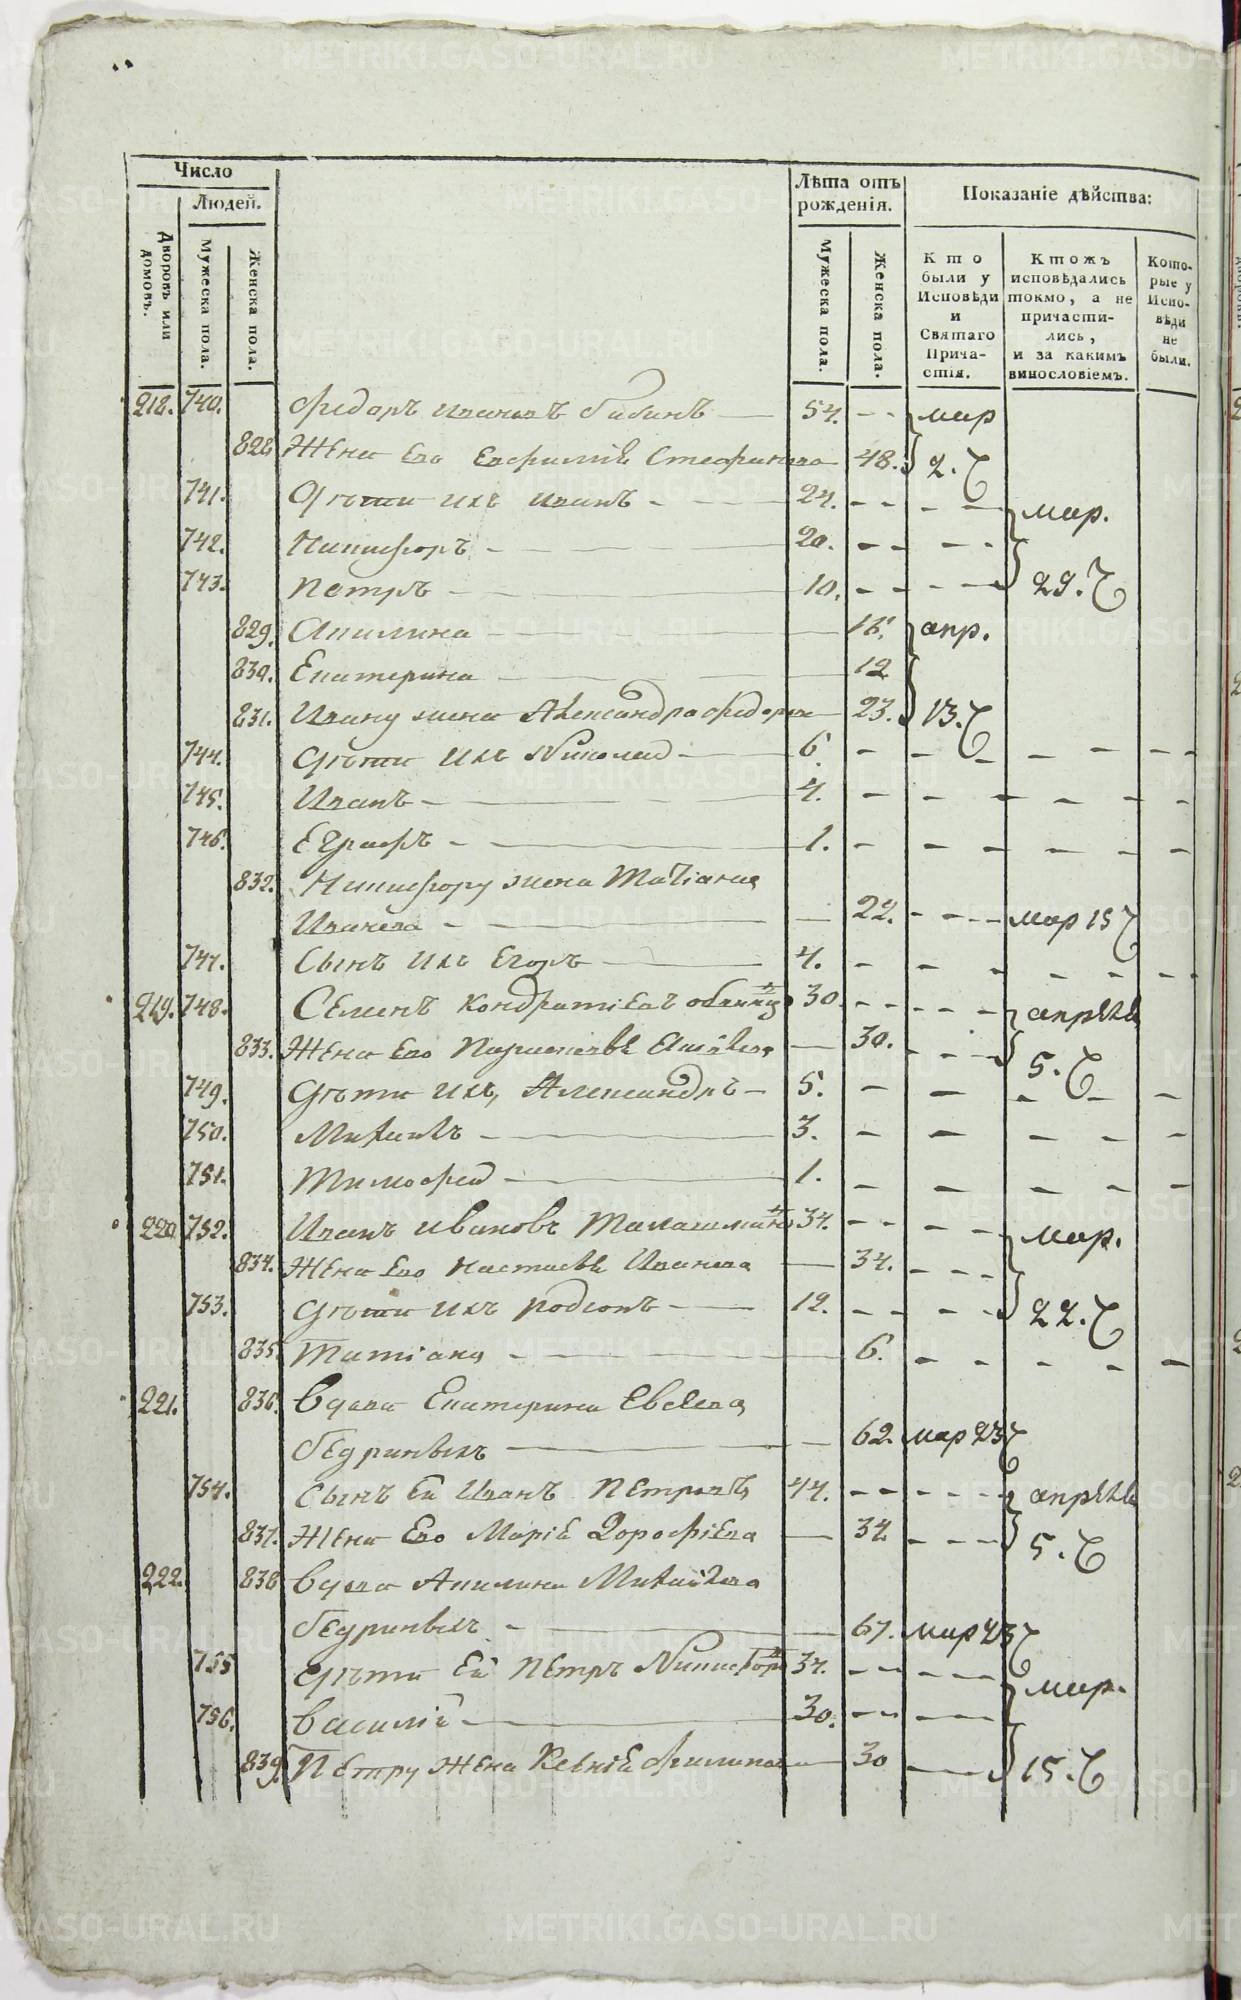 Число
Людей.
Дворовъ или домовъ.
Мужеска пола.
Женска пола.
Лѣта отъ рожденія.
Мужеска пола.
Женска пола.
Показаніе дѣйства:
Кто были у Исповѣди и Святаго Причастія.
Ктожъ исповѣдались токмо, а не причастились, и за какимъ винословіемъ.
Которые у Исповѣди не были.
218. 740. Фидоръ Ивановъ 54. мар
828 Жена Его Евфиміѣ 48. 2.
741. Дѣти ихъ Иванъ 24. мар.
742. Никифоръ 20.
743. Петръ 10. 29.
829. Акилина апр.
830. Екатерина 12
831. Ивану жена Александра 23. 13.
744. Дѣти ихъ Николай 6.
745. Иванъ 4.
746. Еграфъ 1.
832. Никифору жена Матіана
Иванова 22. мар 15
747. Сынъ ихъ Егоръ 4.
219. 748. Семенъ Кондратіевъ 30. апрѣля
833. Жена Его 30. 5.
749. Дѣти ихъ, Александръ 5.
750. Михаилъ 3.
751. Тимофей 1.
220. 752. Иванъ Ивановъ 34. мар.
834. Жена Его Настасьѣ Иванова 34.
753. Дѣти ихъ Родіонъ 12. 22.
835. Татіана 6.
221. 836. Вдова Екатерина Евсѣева
62. мар 23
754. Сынъ Ей Иванъ Петровъ 44. апрѣля
837. Жена Его Маріѣ Дорофѣева 34 5.
222. 838 Вдова Акилина Михайлова
67. мар 23
755 Дѣти Ей Петръ 34. мар.
756. Василій 30.
839. Петру Жена Ксеніѣ Филипова 30 15.
METRIKI.GASO-URAL.RU